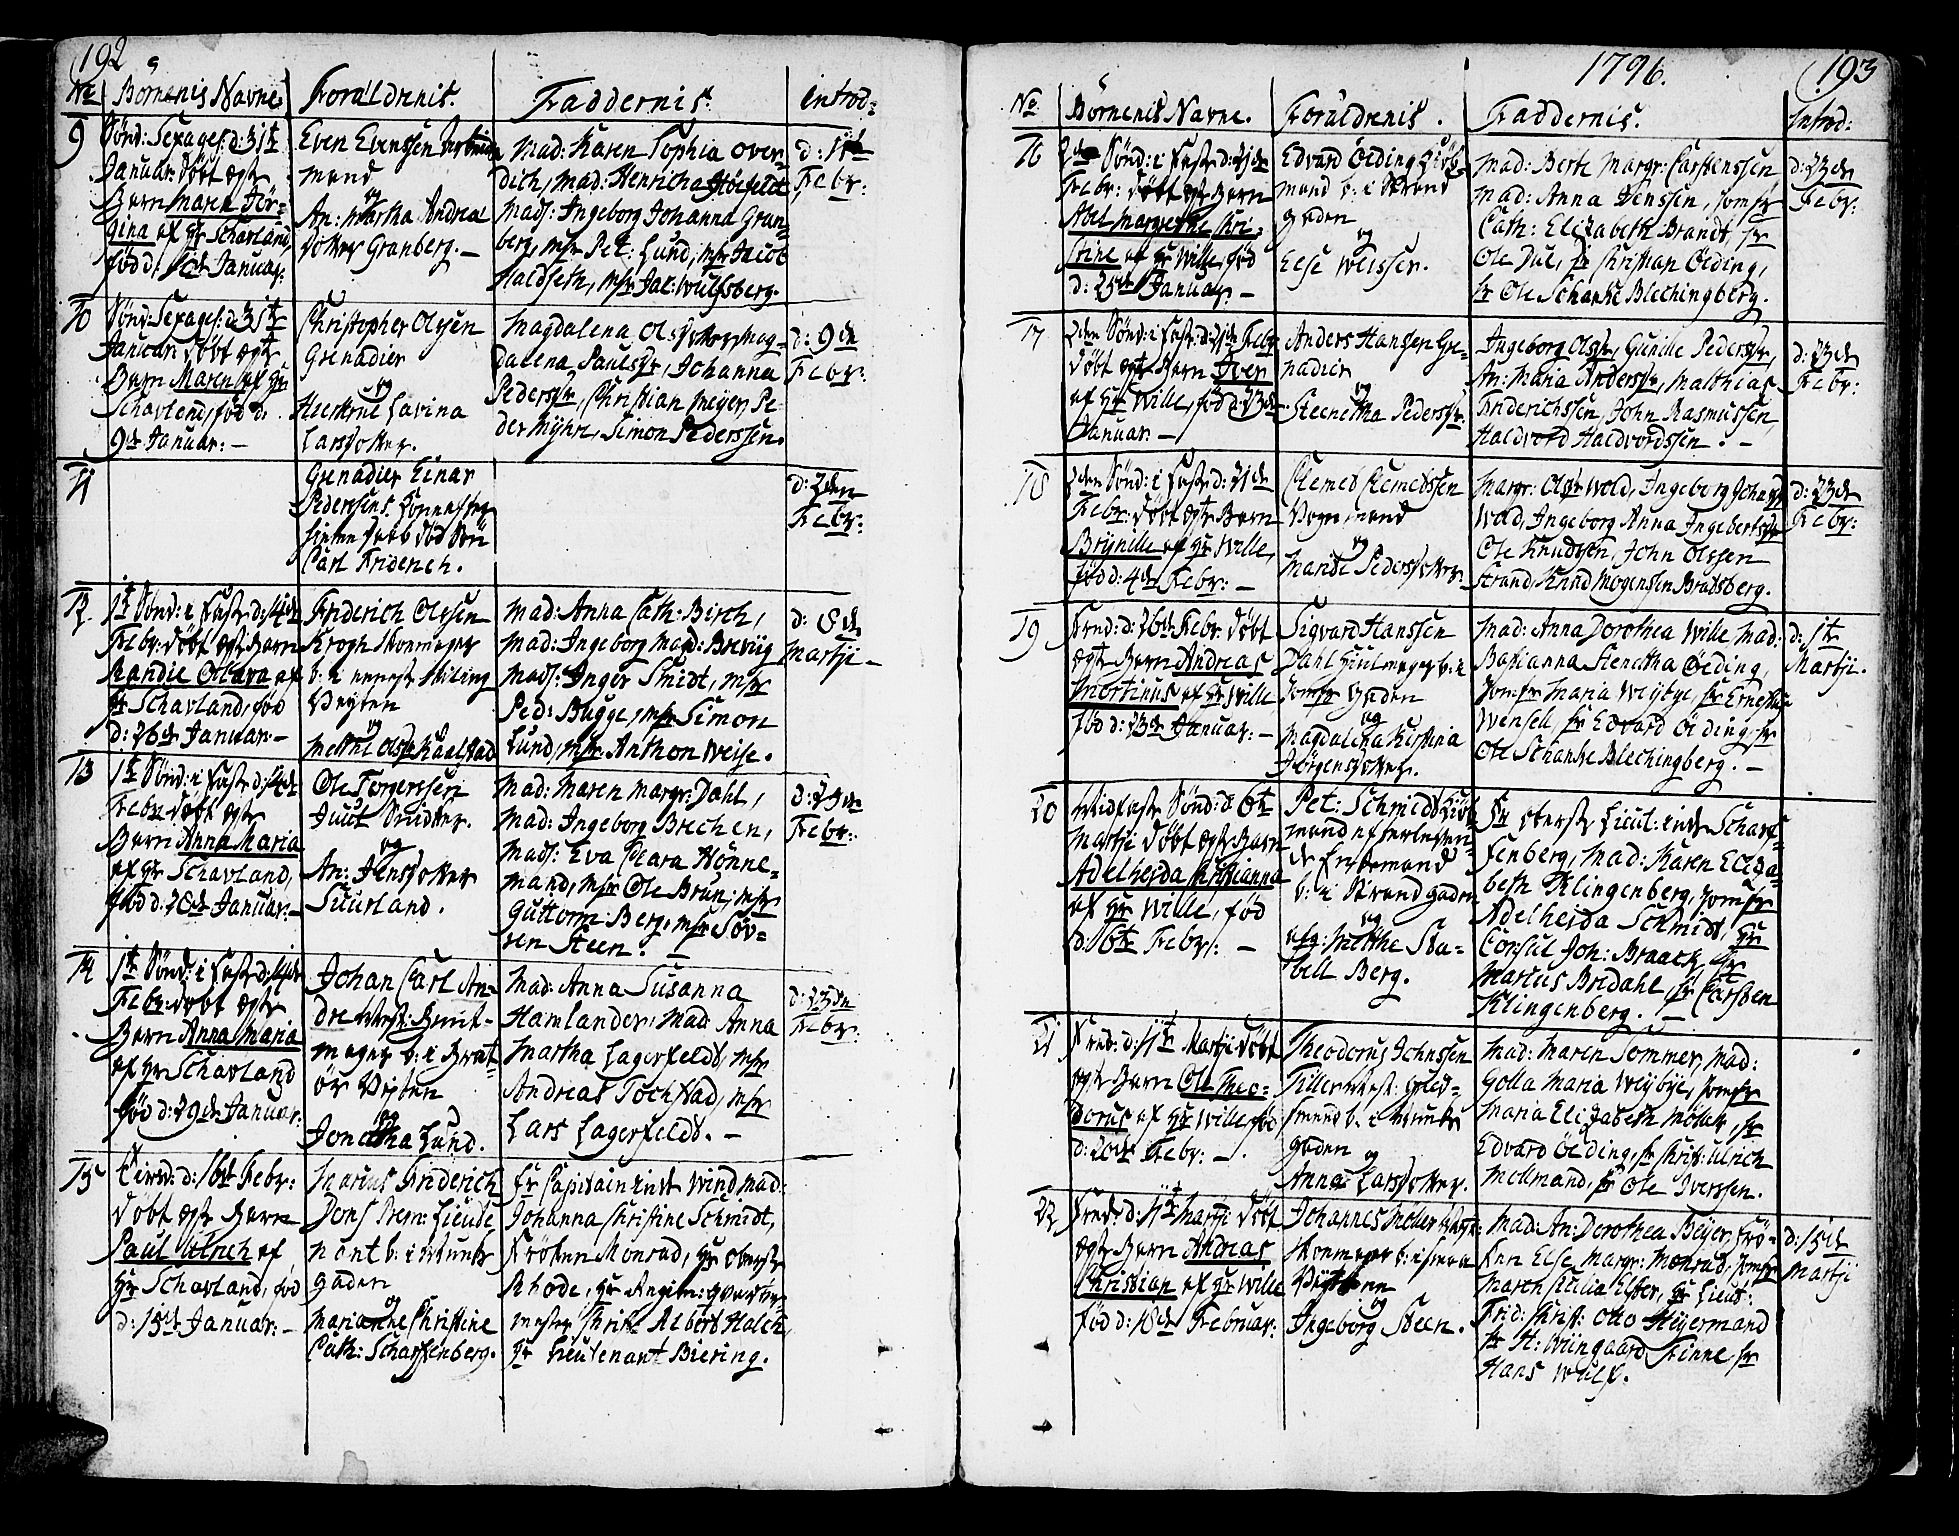 192
No Börnenis Navne.
Forældrenis.
Faddernis.
Introd:
9
Sönd: Sexages: d: 31te
Januar: döbt ægte
Barn Maren Jör-
gina af Hr Schavland,
föd d: Januar:
Even Evensen
mand
og
An: Martha Andreæ
dotter Granberg. -
Mad: Karen Sophia Over-
dich, Mad: Henricha Höifeldt
Mads: Ingeborg Johanna Gran-
berg, Msr Pet: Lund, Msr Jacob
Haldseth, Msr Jac: Wulfsberg.
d: 11te
Febr:
10
Sönd: Sexages: d: 31te
Januar: döbt ægte
Barn Maren af Hr
Schavland, föd d:
9de Januar: -
Christopher Olsen
Grenadier
og
Lavina
Larsdotter.
Magdalena Ols dotter, Mag-
dalena Paulsdr, Johanna
Pedersdr, Christian Meyer, Pe-
der Myhr, Simon Pederssen.
d: 9de
Febr:
11
Grenadier Einar
Pederssens
död
Carl Friderich.
d: 2den
Febr:
12
1te Sönd: i Faste d: 14de
Febr: döbt ægte Barn
Randie Olava af
Hr Schavland, föd
d: 26de Januar: -
Friderich Olssen
Krogh Skomager
b: i
Veyten
og
Olsdr
Mad: Anna Cath: Birch,
Mad: Ingeborg Magd: Breviig
Mads: Inger Smidt, Msr
Ped: Bugge, Msr Simon
Lund, Msr Anthon Weise.
d: 8de
Martji -
13
1te Sönd: i Faste d: 14de
Febr: döbt ægte
Barn Anna Maria
af Hr Schavland,
föd d: 20de Januar: -
Ole Torgerssen
Juul Snidker.
og
An: Jensdotter
Suurland.
Mad: Maren Margr: Dahl,
Mad: Ingeborg Brechen,
Mads: Eva Clara Hönne-
mand, Msr Ole Brun, Msr
Guttorm Berg, Msr Söv-
ren Steen. -
d: 23de
Febr:
14
1te Sönd: i Faste d: 14de
Febr: döbt ægte
Barn Anna Maria
af Hr Schavland
föd d: 29de Januar:
Johan Carl An-
dre
mager b: i Brat-
ör Veyten
og
Jonetha Lund.
Mad: Anna Susanna
Hamlander, Mad: Anna
Martha Lagerfeldt, Msr
Andreas Tochstad, Msr
Lars Lagerfeldt. -
d: 23de
Febr:
15
Tirsd: d: 16de Febr:
döbt ægte Barn
Paul Ulrich af
Hr Schavland, föd
d: 15de Januar: -
Marius Friderich
Dons Prem: Lieute
nant b: i Munke
gaden
og
Marianne Christine
Cath: Scharffenberg.
Fr Capitaininde Wind, Mad:
Johanna Christine Schmidt,
Fröken Monrad, Hr Oberste
Rhode, Hr Regim: Qvarteer-
mester Christ: Albert Holck,
Hr Lieutenant Biering.
1796.
193
No
Börnenis Navne.
Forældrenis.
Faddernis.
Introd:
16
2den Sönd: i Faste d: 21de
Febr: döbt ægte Barn
Abel Margrethe Chri-
stine af Hr Wille, föd
d: 25de Januar. -
Edvard Öeding Kiöb-
mand b: i Strand
gaden
og
Else Weisser.
Mad: Berte Margr: Carstenssen
Mad: Anna Jenssen, Jomfr
Cath: Elizabeth Brandt, Hr
Ole Due, Hr Christian Öeding,
Hr Ole Schanke Blechingberg.
d: 23de
Febr:
17
2den Sönd: i Faste d: 21de Febr
döbt ægte Barn Iver
af Hr Wille, föd d: 23de
Januar. -
Anders Hansen Gre-
nadier
og
Stenetha Pedersdr:
Ingeborg Olsdr, Gunille Pedersdr,
An: Maria Andersdr, Matthias
Friderichssen, John Rasmussen
Haldvord Haldvordssen. -
d: 23de
Febr:
18
2den Sönd: i Faste d: 21de
Febr: döbt ægte Barn
Brynille af Hr Wille,
föd d: 4de Febr: -
Clemet Clemetssen
Vognmand
og
Marite Pedersdotter.
Margr: Olsdr Wold, Ingeborg Johnsdr
Wold, Ingeborg Anna Ingebertsdr
Ole Knudssen, John Olssen
Strand, Knud Mogensen Bratsberg.
d: 23de
Febr:
19
Fred: d: 26de Febr: döbt
ægte Barn Andreas
Mortinus af Hr Wille,
föd d: 23de Januar: -
Sigvard Hanssen
Dahl Hiulmager b: i
Jomfr Gaden
og
Magdalena Kirstina
Jörgensdotter.
Mad: Anna Dorothea Wille, Mad:
Basianna Stenetha Öeding,
Jomfr Maria Weybye, Hr Ernestus
Wensell, Hr Edvard Öeding, Hr
Ole Schanke Blechingberg. -
d: 1te
Martji.
20
Midfaste Sönd: d: 6te
Martji döbt ægte Barn
Adelheida Christianna
af Hr Wille, föd
d: 16te Febr: -
Pet: Schmidt Kiöb
mand
b: i Strand gaden
og
Mætthe Sta-
bell Berg.
Fr Oberste Lieut: inde Scharf-
fenberg, Mad: Karen Eliza-
beth Klingenberg, Jomfr
Adelheida Schmidt, Hr
Consul Joh: Braack, Hr
Marcus Bredahl, Hr Carsten
Klingenberg. -
21
Fred: d: 11te Martji döbt
ægte Barn Ole Theo-
dorus af Hr Wille, föd
d: 20de Febr: -
Theodorus Johnssen
Tiller
b: i Munke
gaden
og
Anna Larsdotter.
Mad: Maren Sommer, Mad:
Golla Maria Weybye, Jomfr
Maria Elizabeth Möller, Hr
Edvard Öeding, Hr Christ: Ulrich
Mollmand, Hr Ole Iverssen.
22
Fred: d: 11te Martji döbt
ægte Barn Andreas
Christian af Hr Wille
föd d: 18de Februar:
Johannes Möller
Skomager b: i
Veyten
og
Ingeborg Steen.
Mad: An: Dorothea Beyer, Frö-
ken Else Margr: Monrad, Jomfr
Maren Cicilia Elster, Hr Lieut:
Frid: Christ: Otto Heyermand
Hr H: Wiingaard Finne, Hr
Hans Wulf.
d: 15de
Martji